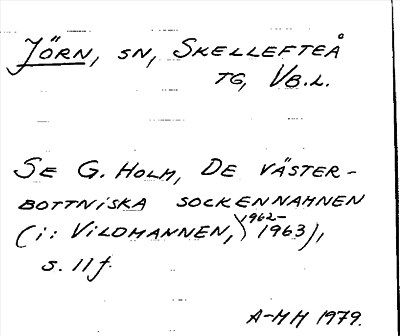 Jörn, sn, Skellefteå
tg, Vb.l.
Se G. Holm, De väster-
bottniska sockennamnen
(i: Vildmannen, 1962-1963),
s. 11f.
A-MH 1979.